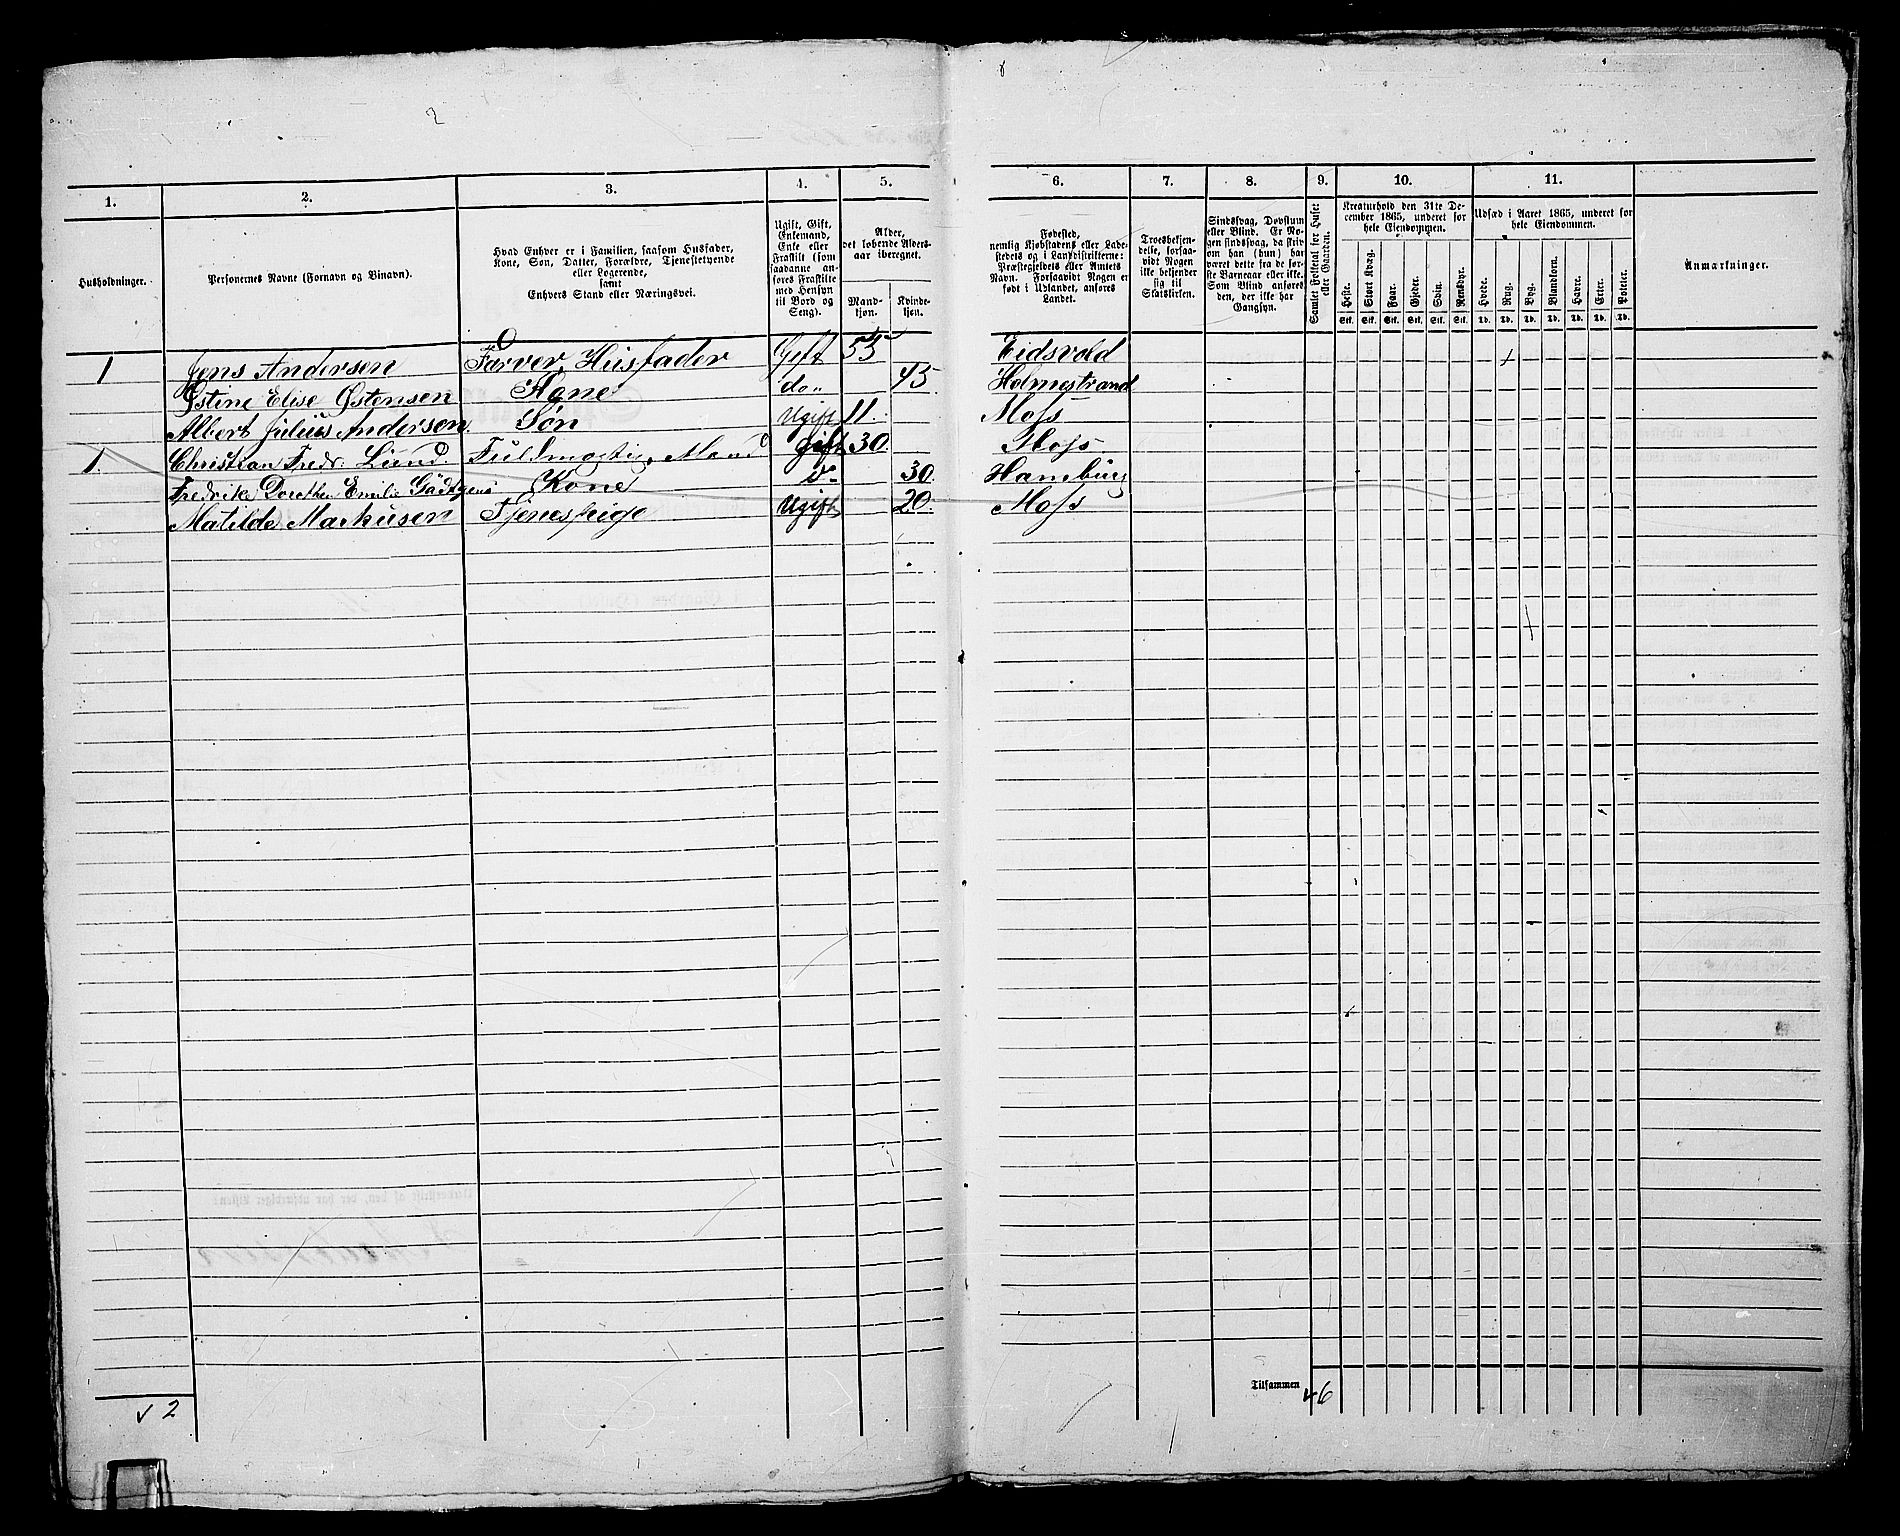 2
1.
2.
3.
4.
5.
6.
7.
8.
9.
10.
11.
Husholdninger.
Personernes Navne (Fornavn og Binavn).
Hvad Enhver er i Familien, saasom Husfader,
Kone, Søn, Datter, Forældre, Tjenestetyende
eller Logerende,
samt
Enhvers Stand eller Næringsvei.
Ugift, Gift,
Enkemand,
Enke eller
Fraskilt (som
saadanne an-
føres Fraskilte
med Hensyn
til Bord og
Seng).
Alder,
det løbende Alders-
aar iberegnet.
Mand-
kjøn.
Kvinde-
kjøn.
Fødested,
nemlig Kjøbstadens eller Lade-
stedets og i Landdistrikterne:
Præstegjeldets eller Amtets
Navn. Forsaavidt Nogen er
født i Udlandet, anføres
Landet.
Troesbekjen-
delse, forsaa-
vidt Nogen
ikke bekjender
sig til
Statskirken.
Sindssvag, Døvstum
eller Blind. Er No-
gen sindssvag, da skriv
om han (hun) har
været dette fra de før-
ste Barneaar eller ikke.
Som Blind anføres
den, der ikke har
Gangsyn.
Samlet Folketal for Huset
eller Gaarden.
Kreaturhold den 31te De-
cember 1865, underet for
hele Eiendommen.
Heste.
Stort Kvæg.
Faar.
Gjeder.
Svin.
Rensdyr.
Stk. Stk. Stk. Stk. Stk. Stk.
Udsæd i Aaret 1865, underet for
hele Eiendommen.
Hvede.
Rug.
Byg.
Blandkorn.
Havre.
Erter.
Poteter.
Td. Td. Td. Td. Td. Td. Td.
Anmærkninger.
1 Jens Andersen Farver, Husfader Gift 55 Eidsvold
Østine Elise Østensen Kone do 45 Holmestrand
Albert Julius Andersen Søn Ugift 11. Moss
1. Christian Fredr. Lund. Fuldmægtig, Mand gift 30. Moss
Fredrikke Dorothea Emilie Kone Do 30. Hamburg
Matilde Markusen Tjenestpige Ugift 20. Moss
Tilsammen 6
√ 2